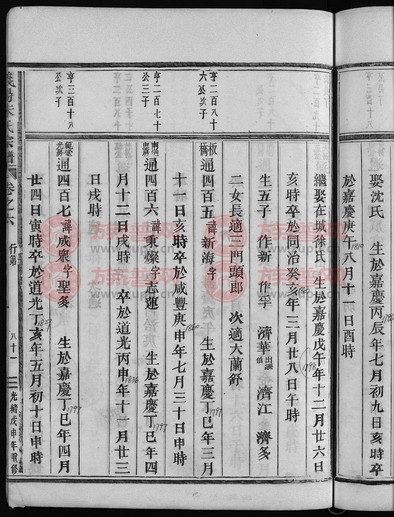 娶沈氏 生於嘉慶丙辰年七月初九日亥時卒
於嘉慶庚午八月十一日酉時
繼娶在城徐氏 生於嘉慶戊午年十二月廿六日
亥時卒於同治癸亥年三月廿八日午時
生五子 作新 作孚 濟華 出繼 濟江 濟多
二女長適三門頭郎 次適大蘭舒
亨二百八十六公次子
板橋 通四百五 諱新海字 生於嘉慶丁巳年三月
十一日亥時卒於咸豐庚申年七月三十日申時
亨二百七十公三子
通四百六 諱秉燦字志蓮 生於嘉慶丁巳年四
月十二日戌時 卒於道光丙申年十一月廿三
日戌時
亨三百十八公次子
通四百七 諱咸熙字聖多 生於嘉慶丁巳年四月
廿四日寅時卒於道光丁亥年五月初十日申時
氏宗譜 卷之六 行第 八十一 光緒戊申年重修